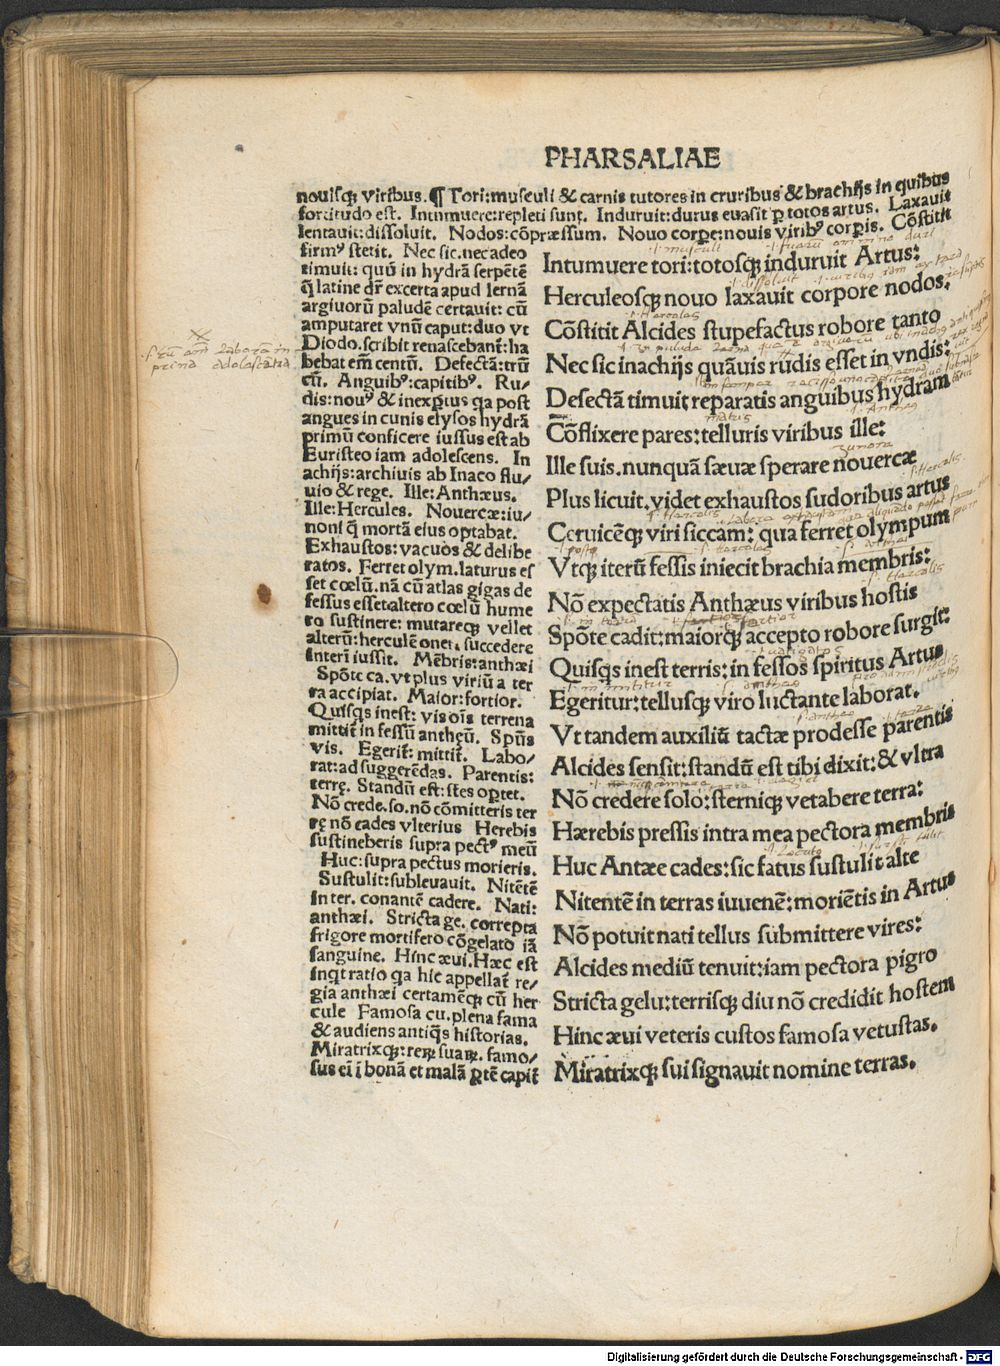 PHARSALIAE
nouisq; viribus. ¶ Tori: musculi & carnis tutores in cruribus & brachijs in quibus
fortitudo est. Intumuere: repleti sunt. Induruit: durus euasit ꝑ totos artus. Laxauit
lentauit: dissoluit. Nodos: cōpræssum. Nouo corpe: nouis viribꝰ corꝑis. Cōstitit
firmꝰ stetit. Nec sic. nec adeo
timuit: quū in hydrā serpētē
q̄ latine dr̄ excerta apud lernā
argiuorū paludē certauit: cū
amputaret vnū caput: duo vt
Diodo. scribit renascebant̄: ha
bebat em̄ centū. Defectā: trū
cū. Anguibꝰ: capitibꝰ. Ru/
dis: nouꝰ & inexꝑtus qa post
angues in cunis elysos hydrā
primū conficere iussus est ab
Euristeo iam adolescens. In
achijs: archiuis ab Inaco flu/
uio & rege. Ille: Anthæus.
Ille: Hercules. Nouercæ: iu/
noni q̄ mortā eius optabat.
Exhaustos: vacuos & delibe
ratos. Ferret olym. laturus es
set cœlū. nā cū atlas gigas de
fessus esset altero cœlū hume
ro sustinere: mutareq; vellet
alterū: herculē oneri succedere
interī iussit. Mēbris: anthæi
Spōte ca. vt plus viriū a ter
ra accipiat. Maior: fortior.
Quisq̄s inest: vis oīs terrena
mittit̄ in fessū antheū. Spūs
vis. Egerit̄: mittit̄. Labo/
rat: ad suggerēdas. Parentis:
terrę. Standū est: stes oꝑtet.
Nō crede. so. nō cōmitteris ter
rę nō cades vlterius Herebis
sustineberis supra pectꝰ meū
Huc: supra pectus morieris.
Sustulit: subleuauit. Nitētē
in ter. conantē cadere. Nati:
anthæi. Stricta ge. correpta
frigore mortifero cōgelato iā
sanguine. Hinc æui. Hæc est
inqt ratio qa hic appellat̄ re/
gia anthæi certamēq; cū her
cule Famosa cu. plena fama
& audiens antiq̄s historias.
Miratrixq;: reꝝ suaꝝ. famo/
sus ei ī bonā et malā ꝑtē capit̄
Intumuere tori: totosq; induruit Artus:
Herculeosq; nouo laxauit corpore nodos.
Cōstitit Alcides stupefactus robore tanto
Nec sic inachijs quāuis rudis esset in vndis:
Desectā timuit reparatis anguibus hydram
Cōflixere pares: telluris viribus ille:
Ille suis. nunquā sæuæ sperare nouercæ
Plus licuit. videt exhaustos sudoribus artus
Ceruicēq; viri siccam: qua ferret olympum
Vtq; iterū fessis iniecit brachia membris:
Nō expectatis Anthæus viribus hostis
Spōte cadit: maiorq; accepto robore surgit:
Quisq̄s inest terris: in fessos spiritus Artus
Egeritur: tellusq; viro luctante laborat.
Vt tandem auxiliū tactæ prodesse parentis
Alcides sensit: standū est tibi dixit: & vltra
Nō credere solo: sterniq; vetabere terra:
Hærebis pressis intra mea pectora membris
Huc Antæe cades: sic fatus sustulit alte
Nitentē in terras iuuenē: moriētis in Artus
Nō potuit nati tellus submittere vires:
Alcides mediū tenuit: iam pectora pigro
Stricta gelu: terrisq; diu nō credidit hostem
Hinc æui veteris custos famosa vetustas.
Miratrixq; sui signauit nomine terras.
Digitalisierung gefördert durch die Deutsche Forschungsgemeinschaft - DFG